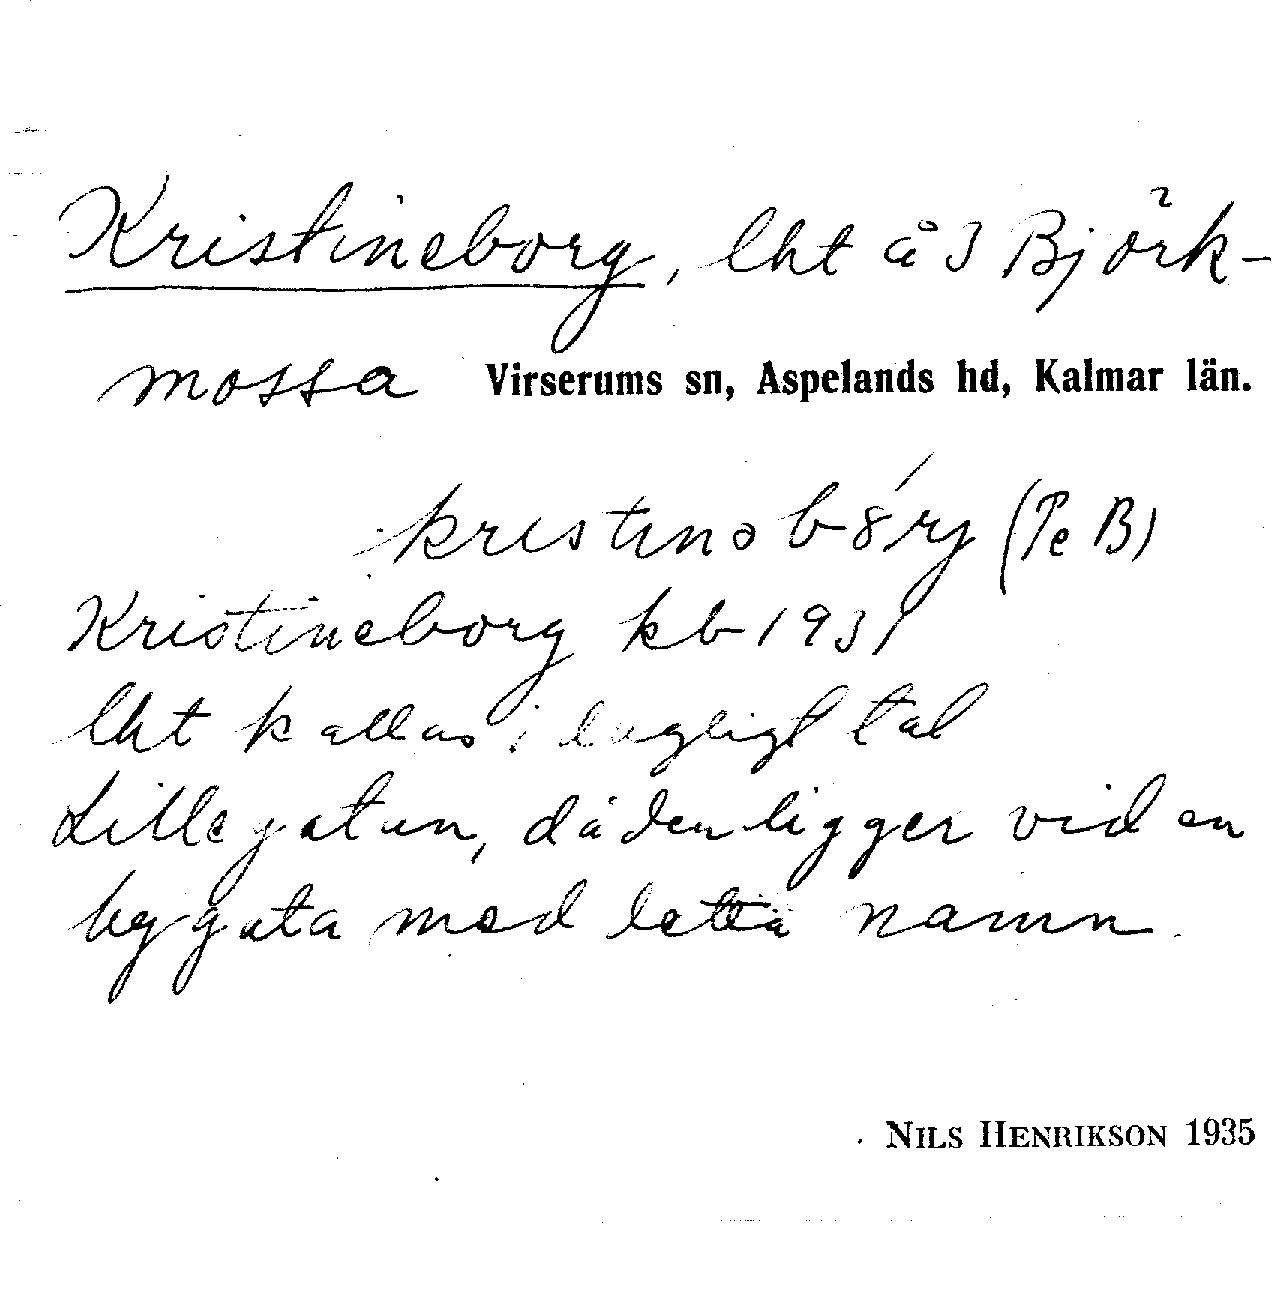 Kristineborg, lht å 3 Björk-
mossa Virserums sn, Aspelands hd, Kalmar län.
kristinəbórj (Pe B)
Kristineborg kb 1931
lht kallas i dagligt tal
Lillegatan, då den ligger vid en
bygata med detta namn.
NILS HENRIKSON 1935